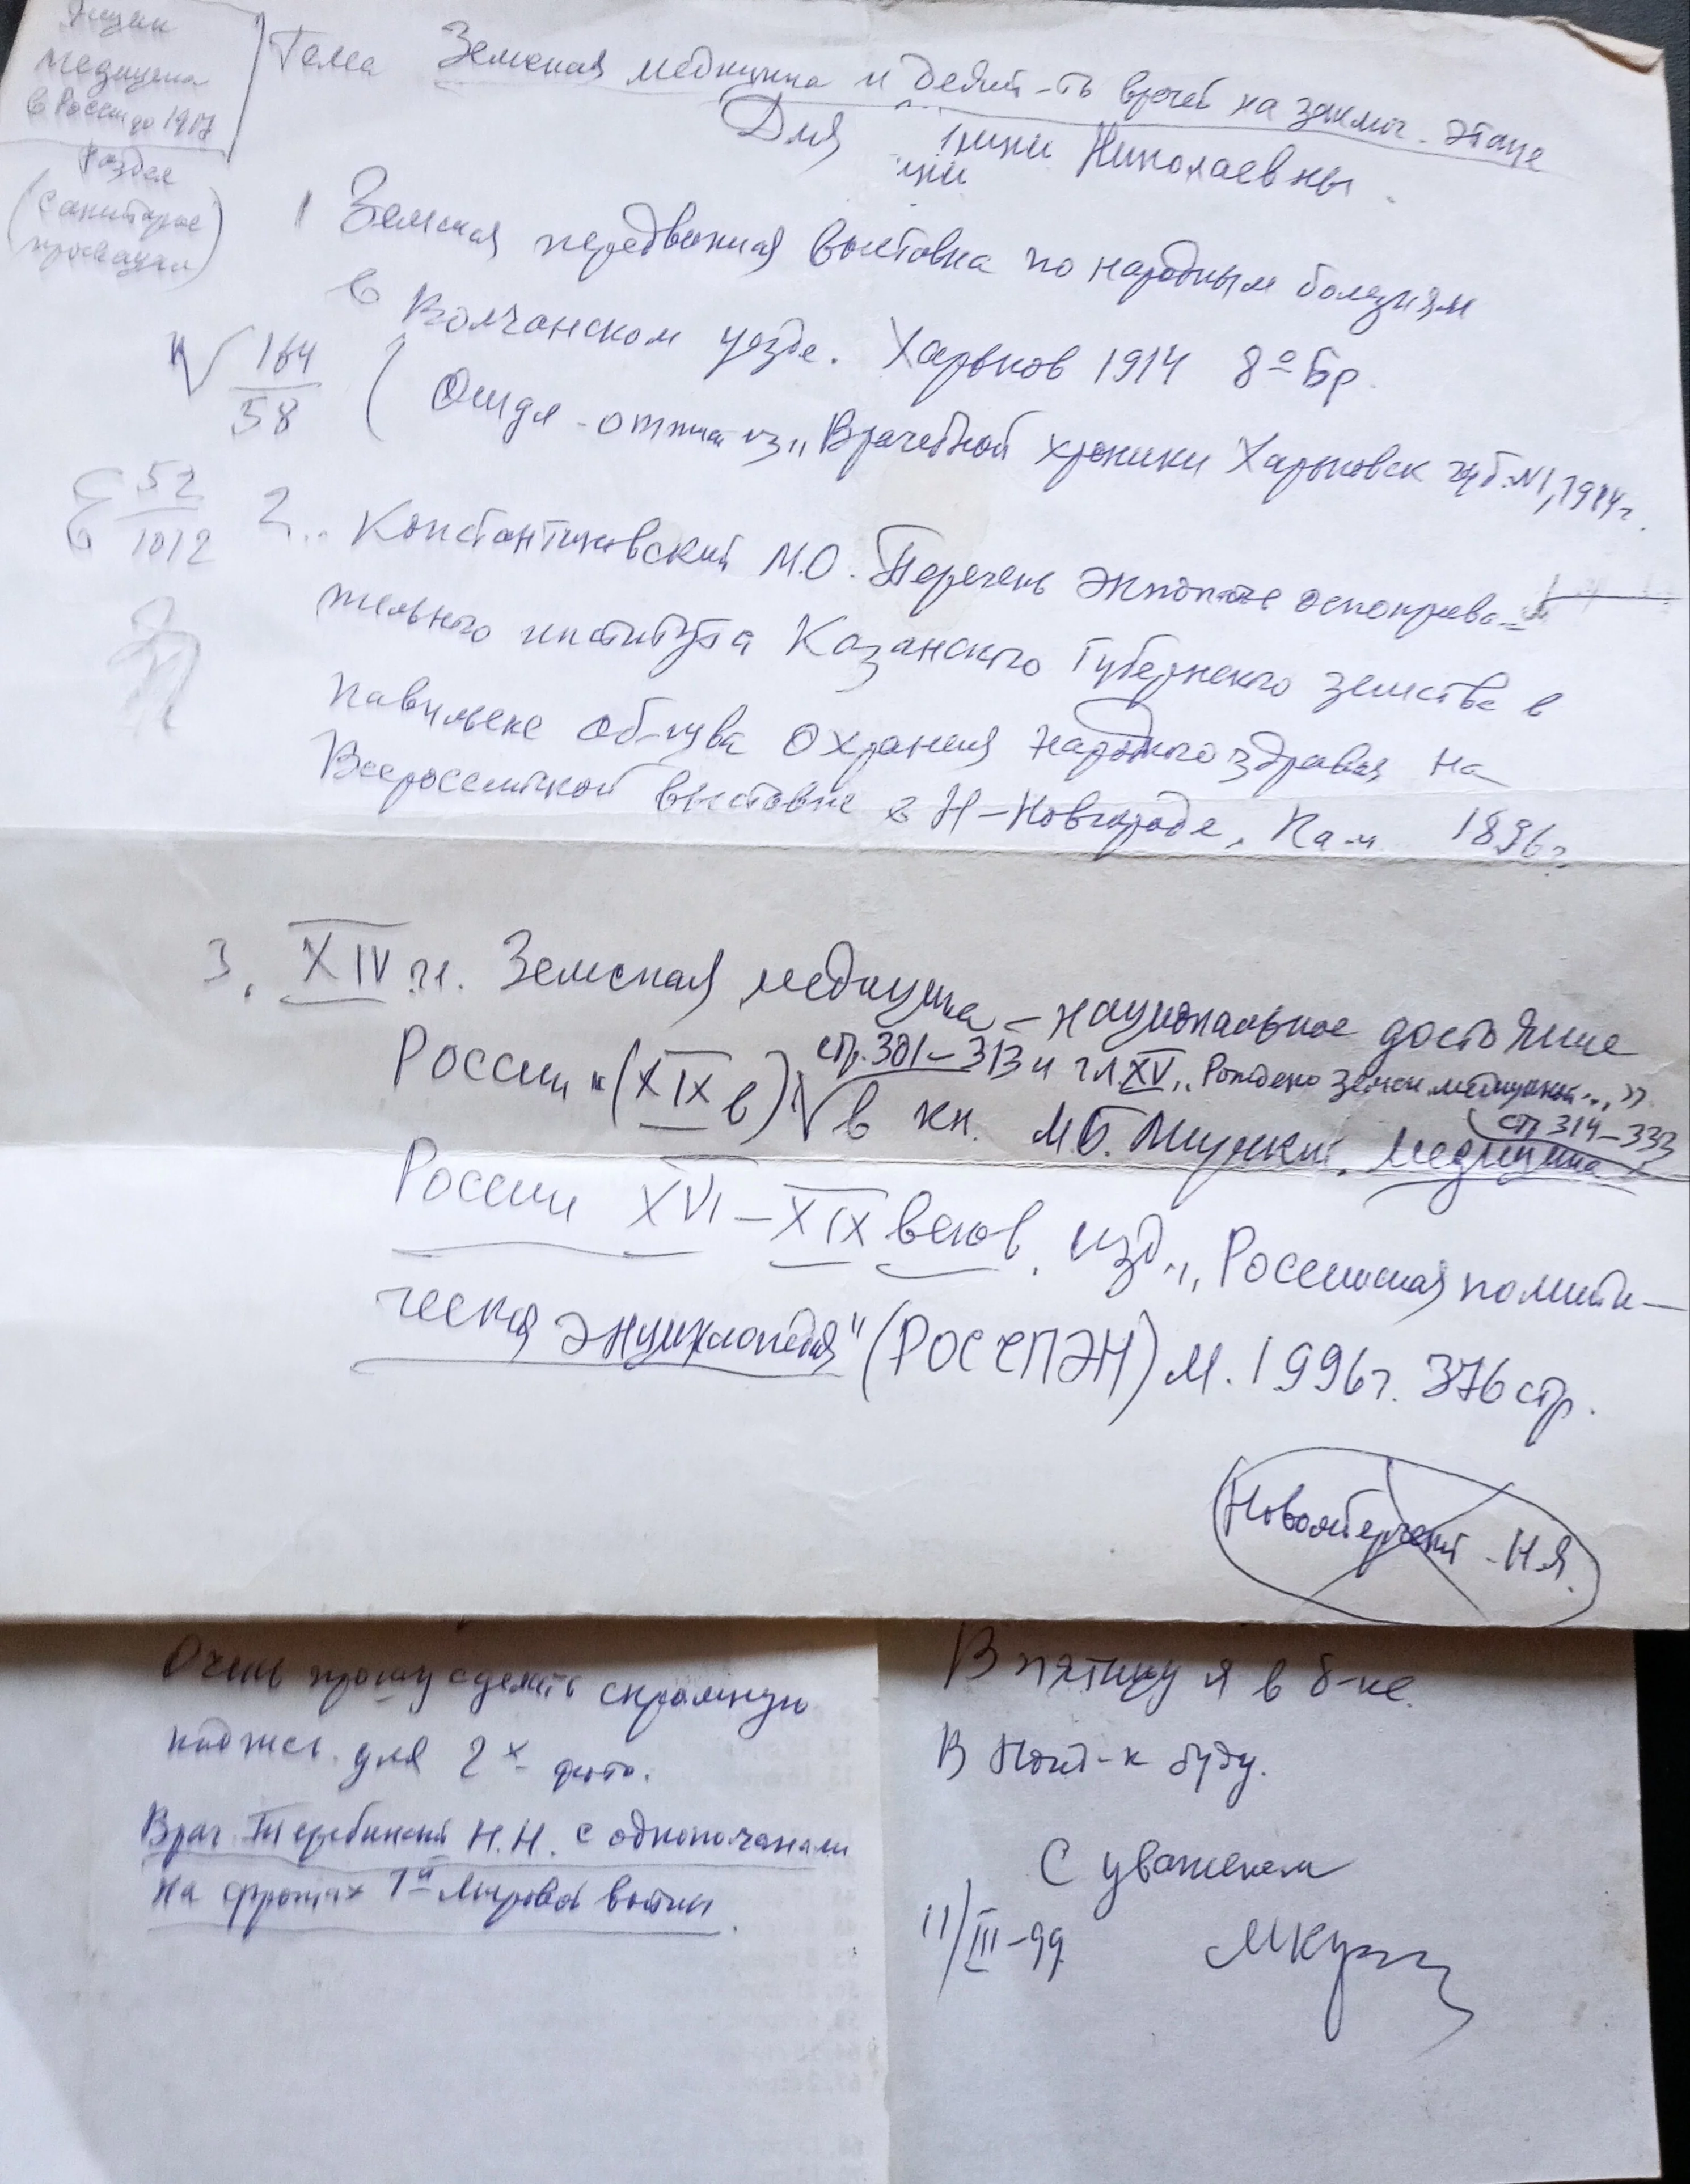 Ящик
медицина
в России до 1917
Раздел
(санитарное
просвещен)
Тема Земская медицина и деят-ть врачей на заключ. этапе
Для Нины Николаевны.
1 Земская передвижная выставка по народным болезням
в Волчанском уезде. Харьков 1914 8º Бр.
164
58
( Отдел. оттиск из „Врачебной хроники Харьковск губ. №1, 1914г.
52
1012
2.. Константиновский М.О. Перечень экспонатов оспопрививательного института Казанского губернского земства в
павильоне об-ства охранения народного здравия на
Всероссийской выставке в Н-Новгороде. Каз. 1896г.
3. XIV гл. Земская медицина – национальное достояние
России "(XIX в) стр. 301–313 и гл XV „Рождено земск. медициной...”
стр 314–333
√ в кн. М.Б. Мирский. Медицина
России XVI–XIX веков. изд. „Российская полити–
ческая энциклопедия" (РОССПЭН) М. 1996г. 376 стр.
Новомбергский Н.Я.
Очень прошу сделать скромную
подпись для 2х фото.
Врач Теребинский Н.Н. с однополчанами
на фронтах 1й Мировой войны.
В пятницу я в б-ке.
В Пон-к буду.
С уважением
11/III–99